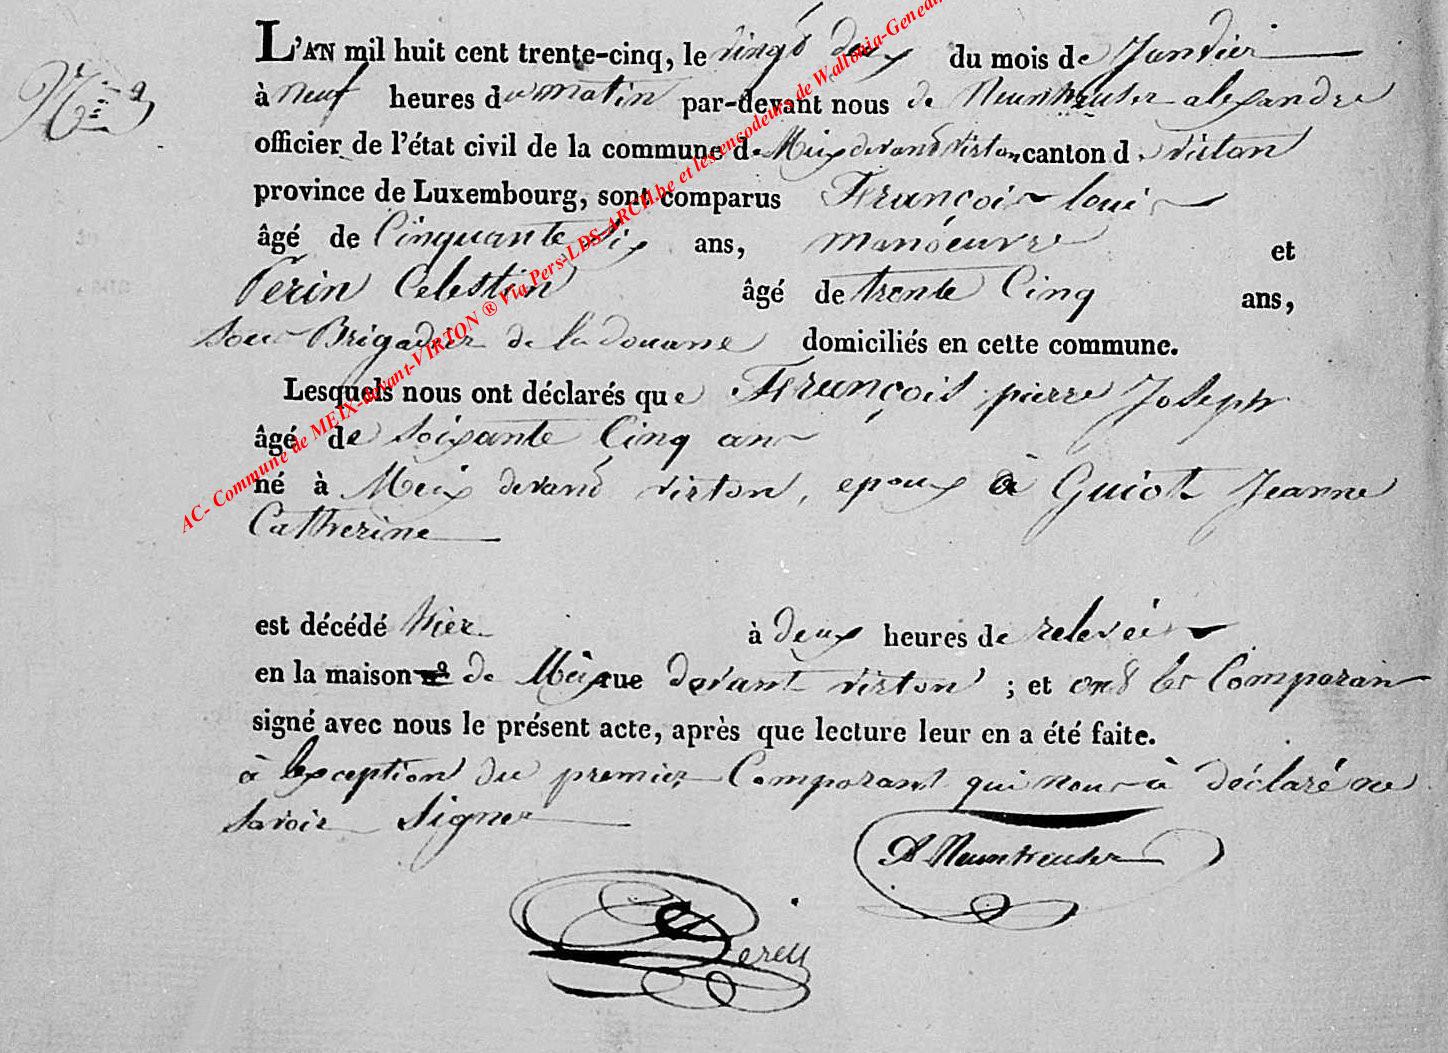 L'AN mil huit cent trente-cinq, le vingt deux du mois de Janvier
à neuf heures du matin par-devant nous de Neunheuser alexandre
officier de l'état civil de la commune de Meix devant virton canton de virton
province de Luxembourg, sont comparus François louis
âgé de Cinquante six ans, manoeuvre et
Perin Celestin âgé de trente Cinq ans,
sous Brigadier de la douane domiciliés en cette commune.
Lesquels nous ont déclarés que François pierre Joseph
âgé de soixante Cinq ans
né à Meix devant virton, epoux à Guiot Jeanne
Catherine
est décédé hier à deux heures de relevée
en la maison n° de Meix rue devant virton ; et ont les Comparans
signé avec nous le présent acte, après que lecture leur en a été faite.
à lexception du premier Comparant qui nous à déclaré ne
savoir signer
A Neunheuser
Perin
AC- Commune de MEIX-devant-VIRTON ® Via Pers-LDS-ARCH.be et les encodeurs de Wallonia-Genealo